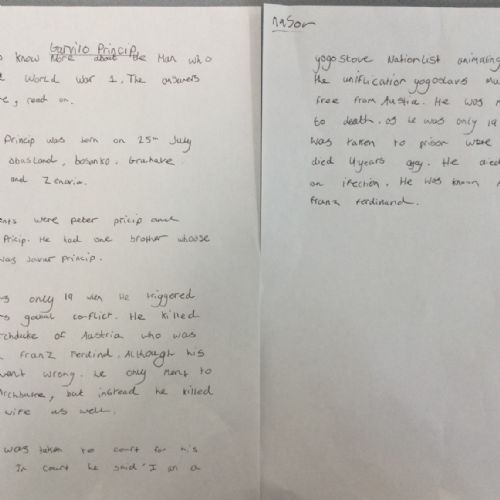 Gavrilo Princip
know More about the Man who
World War 1. The answers
, read on.
Princip was born on 25th July
obasland, bosenko. Grahave
and Zenaria.
were peter pricip and
Pricip. He had one brother whoose
was Jovar Princip.
only 19 when He triggered
goual co-flict. He killed
of Austria who was
Franz Ferdind. Although his
went wrong. he only ment to
, but instead he killed
wife as well.
was taken to court for his
In court he said "I am a
nason
yogo stove Nationlist animating
the unification yogoslavs
free from Austia. He was
to death. as he was only 19
was taken to prison were
died 4 years . He died
on ifection. He was known
Franz Ferdinand.